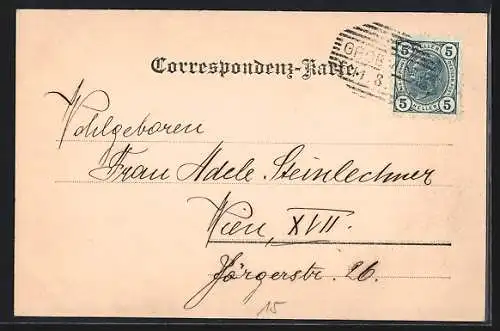 Correspondenz-Karte.
5 HELLER 5
5 HELLER 5
Wohlgeboren
Frau Adele Steinlechner
Wien, XVII.
Jörgerstr. 26.
15